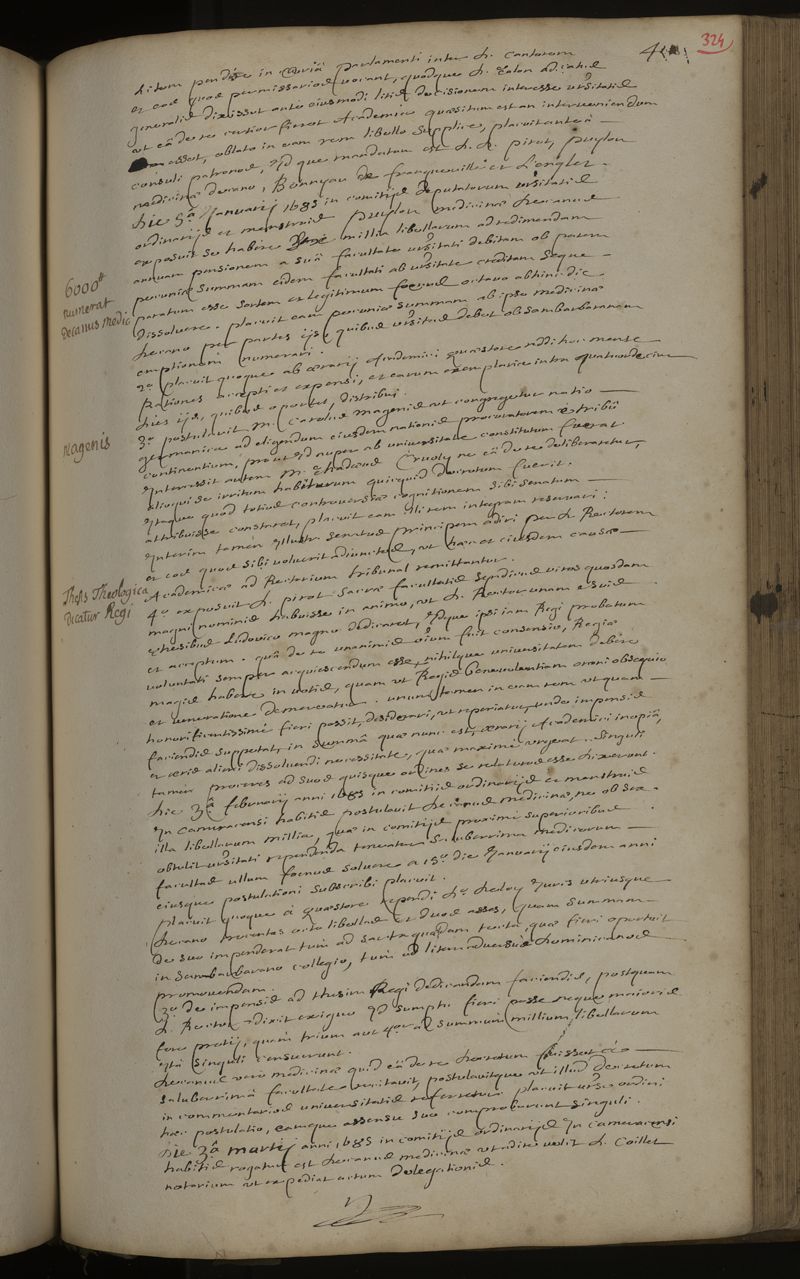 324
litem pendere in Curiâ Parlamenti inter D. Cantorem
et eos quos permissarios vocant, quodque D. Talon advocatus
generalis dixisset ante eiusmodi litis decisionem interesse ursitatis
ut eâ de re certior fieret Academia quaesitum est an interveniendum
esset, oblato in eam rem libello supplice, placuit antea
consuli patronos, idque mandatum est D. D. pirot, puylon
medicinae decano, de francqueville et Lenglet.
die 5.a Januarij 1685 in comitijs deputatorum ursitatis
ordinarijs et menstruis puylon medicinae decanus
exposuit se habere sex millia libellarum ad redimendam
annuam pensionem a suâ facultate ursitati debitam ob parem
pecuniae summam eidem facultati ab ursitate creditam seque
paratum esse sortem et legitimum foenus octavo abhinc die
dissolvere. placuit eam pecuniae summam ab ipso medicinae
decano per partes ijs, quibus ursitas debet ob sambarbaranam
emptionem numerari.
6000tt
numerat
Decanus Medic
2.o placuit quoque ab aerarij Academici quaestore reddi hoc mense
Rationes accepti et expensi, et earum exemplaria intra quatuordecim
dies ijs, quibus oportet, distribui.
3.o postulavit M. Carolus Magenis ut congregetur natio
germanica ad eligendum eiusdem nationis procuratorem e tribû
continentium, prout id nuper ab universitate constitutum fuerat
Magenis
Intercessit autem M. Thadaeus Cruoly ne eâ de re deliberaretur,
alioqui se irritum habiturum quicquid decretum fuerit.
Itaque quod totius controversiae cognitionem sibi senatum
attribuisse constaret, placuit eam ili rem integram reservari:
Interim tamen Illustr. senatus principem adiri per D. Rectorem
et eos quos sibi voluerit adiunctos, ut haec et eiusdem causae
Academicae ad Rectorium tribunal remittantur.
4.o exposuit D. pirot Sacrae facultatis syndicus viros quosdam
magni nominis habuisse in animo, ut D. Rector unam e suis
thesibus Ludovico magno dedicaret, idque ipsi iam Regi probatum
et acceptum. quâ de re unanimis oium fuit consensio, Regiae
voluntati semper acquiescendum esse, nihilque universitatem debere
magis habere in votis, quam ut Regis benevolentiam omni obsequio
et veneratione demereatur. unum tamen in eam rem ut quam
honorificentissime fieri possit, desiderari, ut reperiatur, unde impensis
faciendis suppetat, in summâ quae nunc est, aerarij Academici inopiâ,
et aeris alieni dissolvendi necessitate, quae maximè urgeat. singuli
tamen proceres ad suos quisque ordines se relaturos esse dixerunt.
Thesis Theologica
dicatur Regi
die 3.a februarij anni 1685 in comitijs ordinarijs et menstruis
In Cameracensi habitis postulavit decanus medicinae, ne ob sex
illa libellarum millia, quae in comitijs proximè superioribus
obtulit ursitati rependenda teneatur saluberrima medicorum
facultas ullum foenus solvere a 13.o die Januarij eiusdem anni
eiusque postulationi subscribi placuit.
placuit quoque à quaestore rependi D.o deloy Juris utriusque
decano trecentas octo libellas et duos asses, quam summam
de suo impenderat tum ad sarta quaedam tecta, quae fieri oportuit
in sambarbarano collegio, tum ad litem adversus dominicanos
promovendam.
2.o de impensis ad thesim Regi dedicandam faciendis, postquam
D. Rector dixit exiguo id sumptu fieri posse neque maioris
fore pretij, quam trium aut 4.or ad summum millium libellarum
ita singuli censuerunt.
decanus vero medicinae quid eâ de re decretum fuisset à
saluberrimâ facultate recitavit, postulavitque ut illud decretum
in commentarios universitatis referretur. placuit urso ordini
haec postulatio, eamque assensu suo comprobarunt singuli.
die 3.a martij anni 1685 in comitijs ordinarijs In cameracensi
habitis rogatus est decanus medicinae ut adire velit D. Caillet
notarium ut expediat actum delegationis.